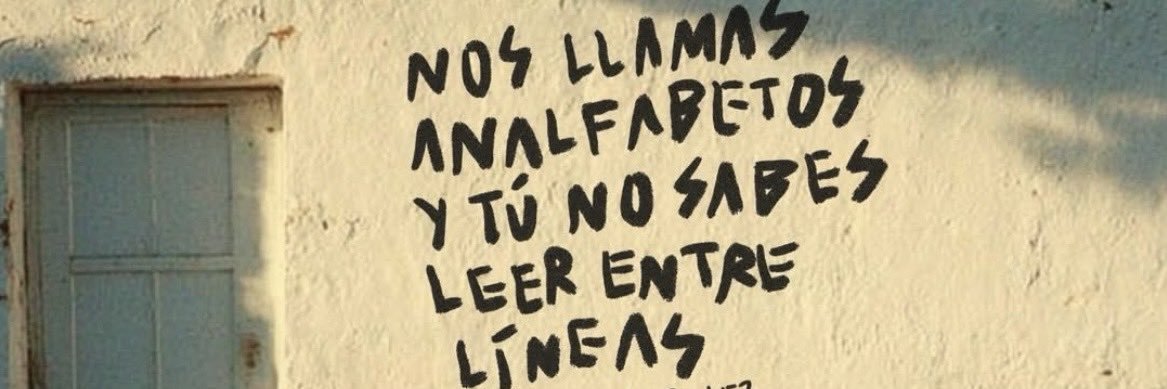 NOS LLAMAS
ANALFABETOS
Y TÚ NO SABES
LEER ENTRE
LÍNEAS